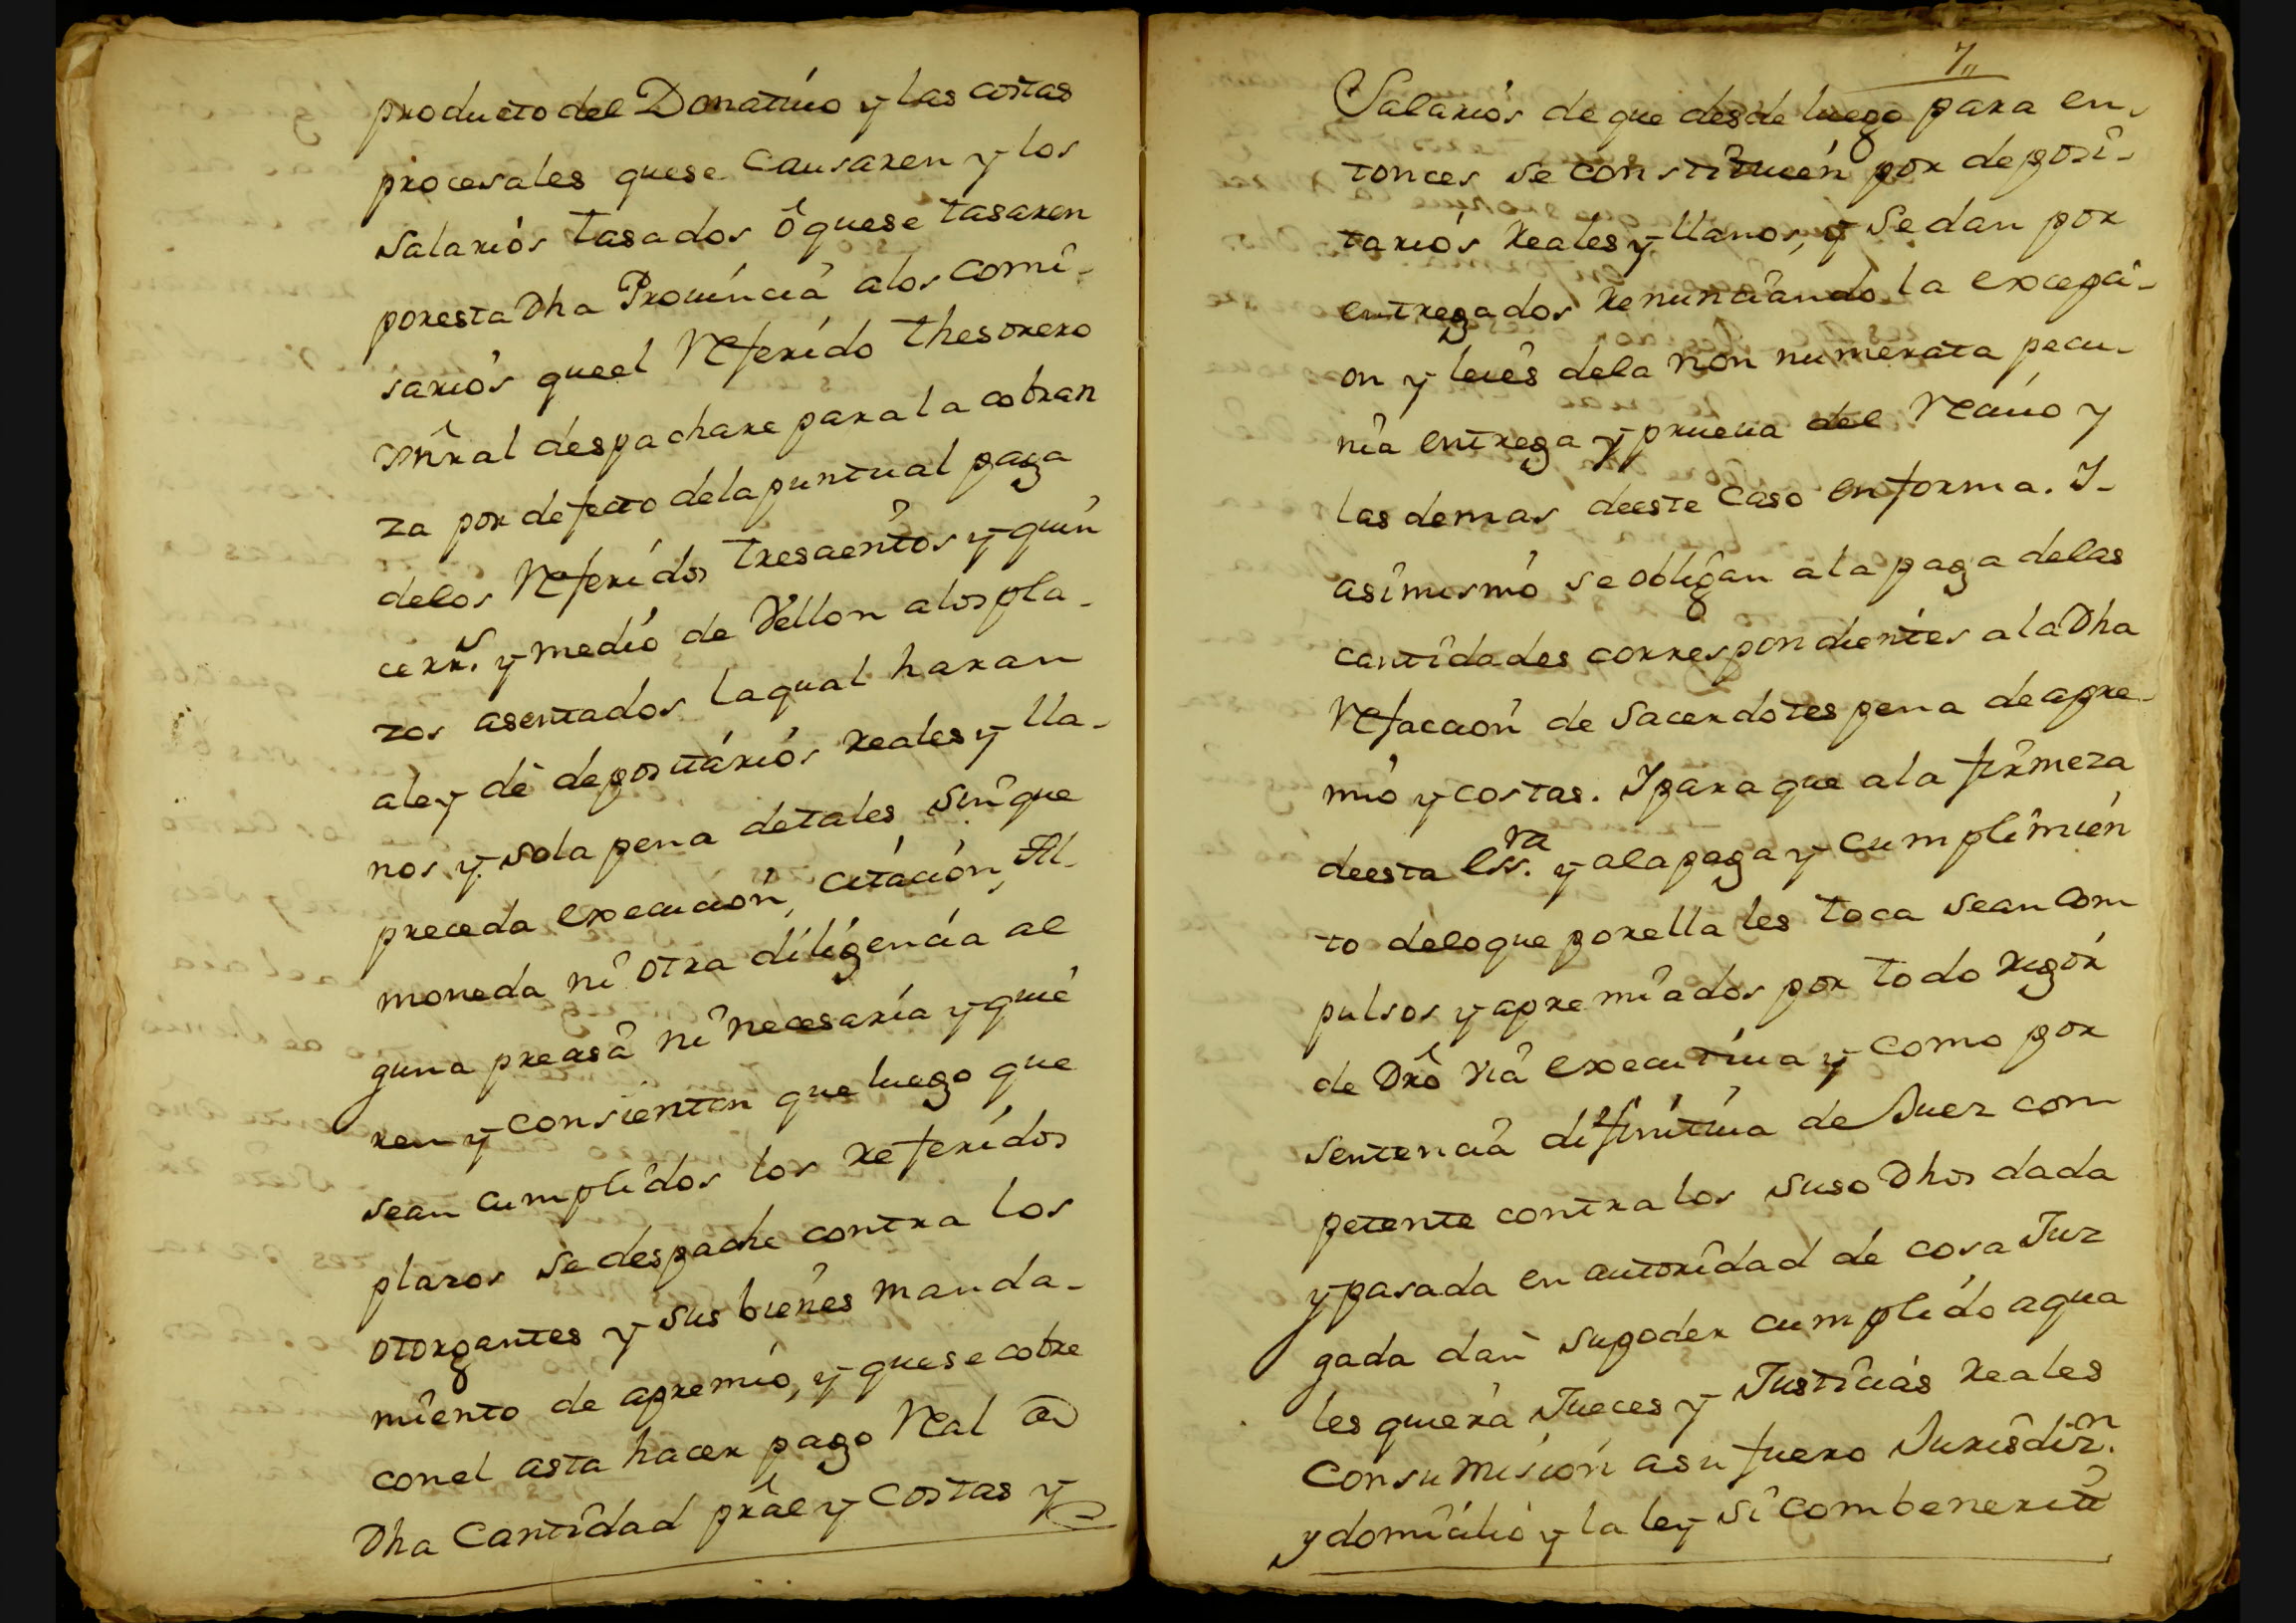 producto del Donatiuo y las costas
procesales quese Causaren y los
salarios tasados ô quese tasaren
poresta Dha Prouincia alos comi-
sarios queel Referido thesorero
Gñral despachare parala cobran
za por defecto dela puntual paga
delos Referidos tresçientos y quin
ce rr.s y medio de Vellon alos pla-
zos asentados laqual haran
aley de depositarios Reales y lla-
nos y sola pena detales sin que
preceda execucion, citacion, Al-
moneda ni otra diligencia al
guna precisa ni necesaria y quie
ren y consienten que luego que
sean cumplidos los referidos
plazos se despache contra los
otorgantes y sus bienes manda-
miento de apremio, y quese cobre
conel asta hacer pago Real de
Dha Cantidad prâl y Costas y
7,,
Salarios de que desde luego para en-
tonces se constituien por deposi-
tarios Reales y llanos, y Se dan por
entregados Renunciando la excepci-
on y leies dela non numerata pecu-
nia entrega y prueua del Reciuo y
las demas deeste Caso en forma. I-
asimismo se obligan ala paga delas
cantidades correspondientes ala Dha
Refaccion de Sacerdotes pena deapre-
mio y costas. I para que ala firmeza
deesta ess.ra y alapaga y Cumplimien
to deloque porella les toca sean Com
pulsos y apremiados por todo rigor
de Drô via executiua y como por
sentencia difinitiua de Juez com
petente contra los suso Dhos dada
y pasada en autoridad de cosa Juz
gada dan supoder cumplido aqua
les quiera Jueces y Justicias Reales
Consumision asu fuero Jurisdiz.on
y domicilio y la ley si combenerit